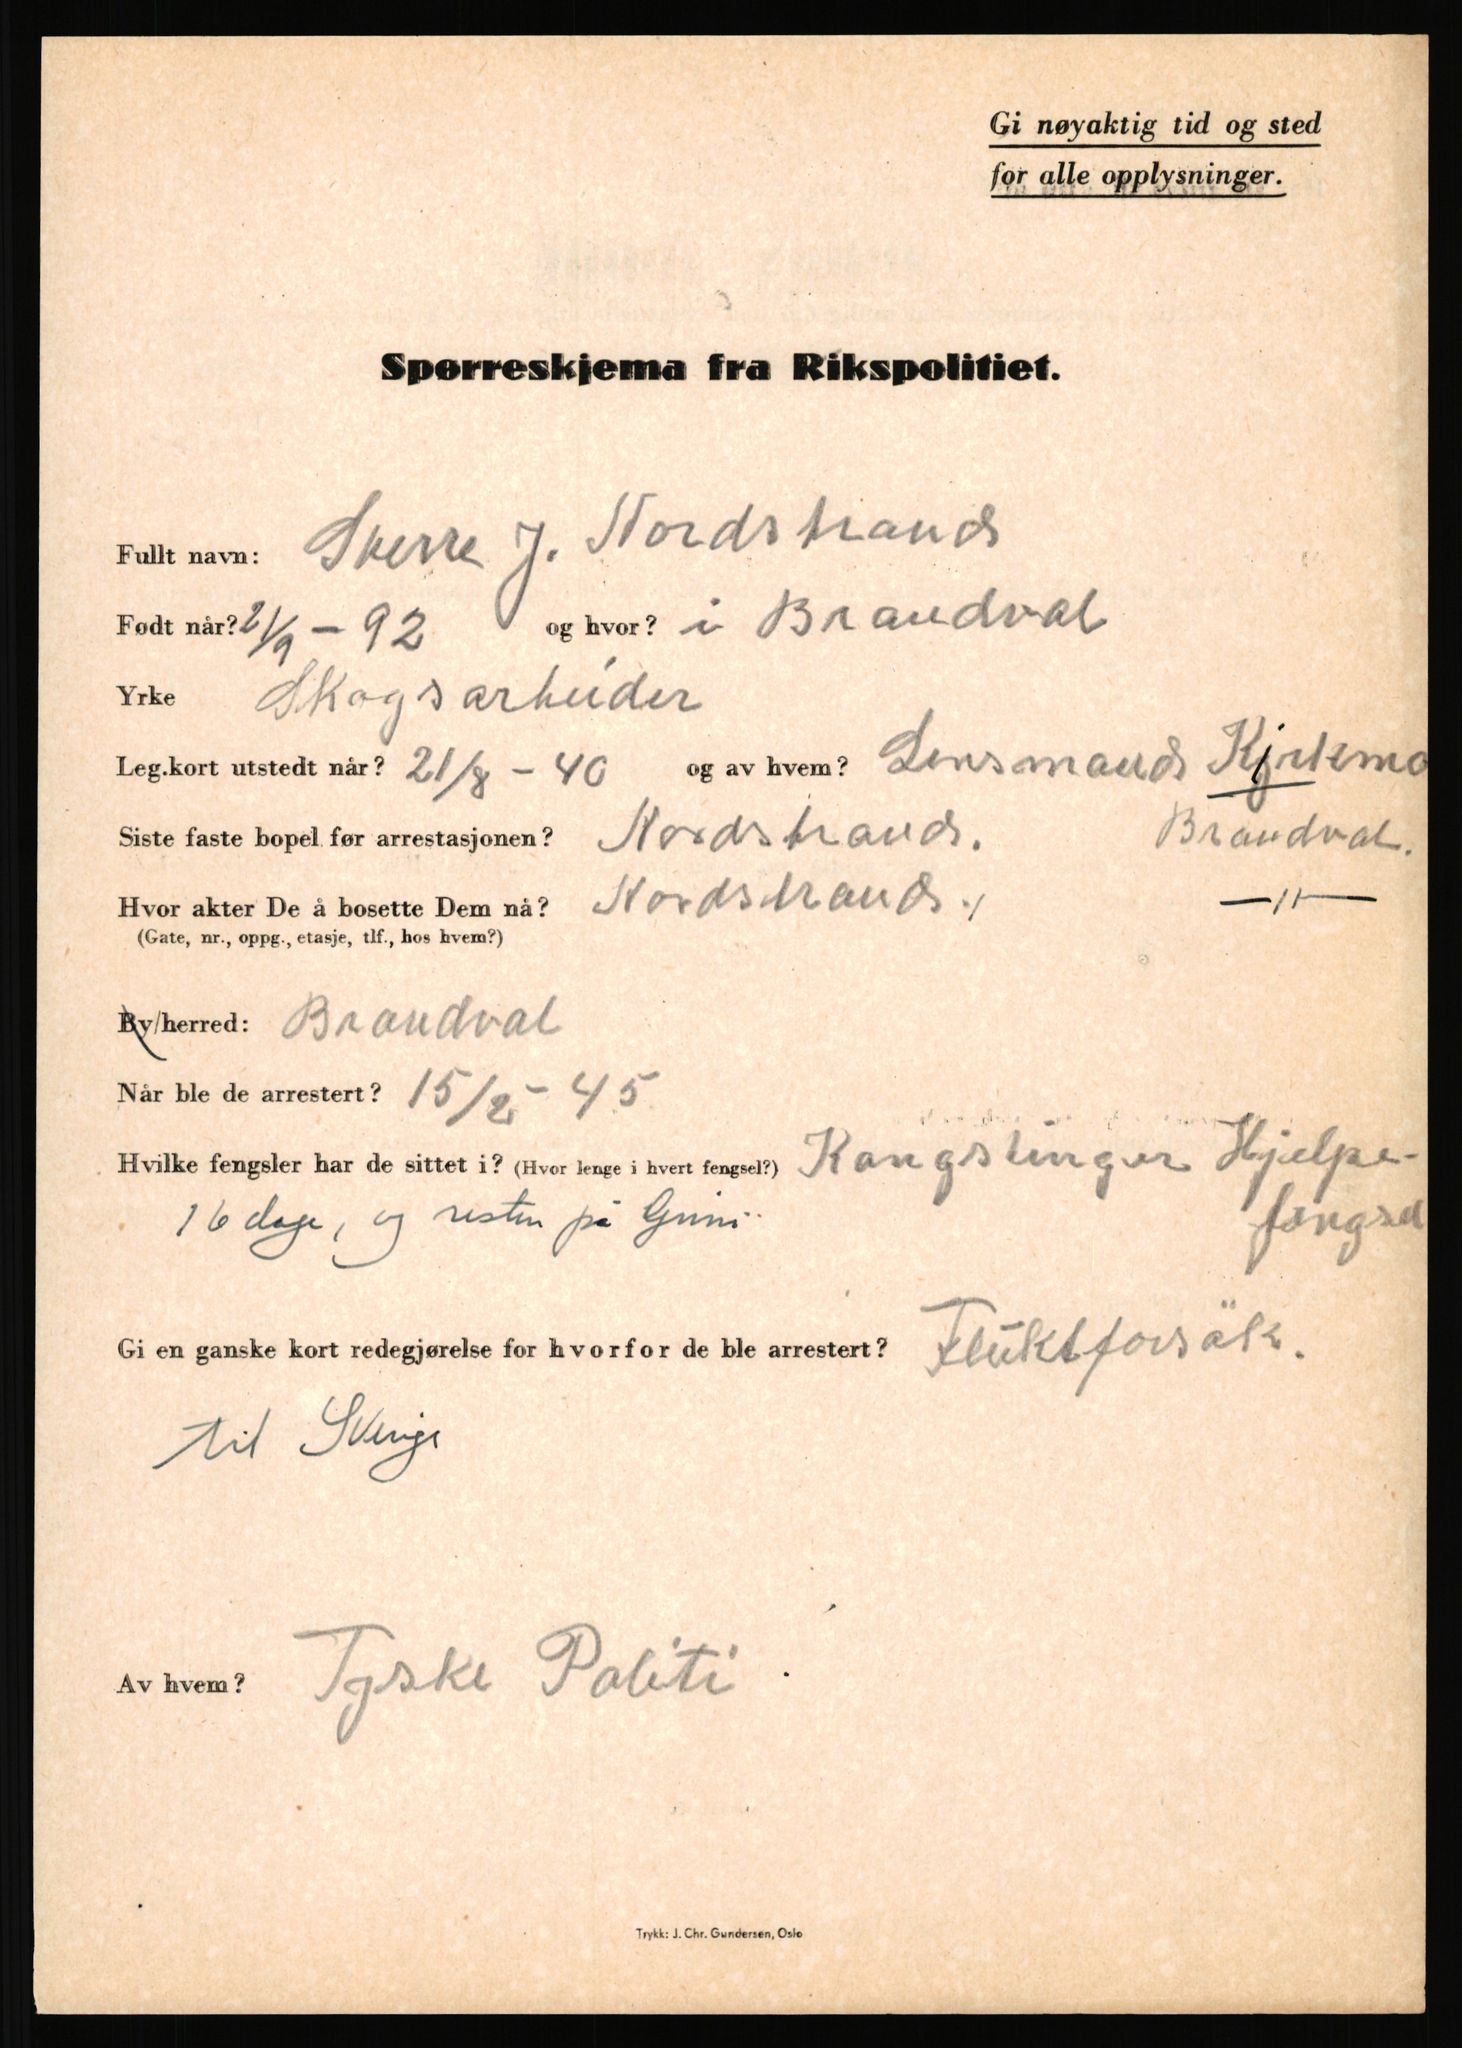 Gi nøyaktig tid og sted
for alle opplysninger.
Spørreskjema fra Rikspolitiet.
Fullt navn: Sverre J. Nordstrand
Født når? 2/9 - 92 og hvor? i Brandval
Yrke Skogsarbeider
Leg.kort utstedt når? 21/8 - 40 og av hvem? Lensmand Kirkemo
Siste faste bopel før arrestasjonen? Nordstrand. Brandval.
Hvor akter De å bosette Dem nå? Nordstrand. —"—
(Gate, nr., oppg., etasje, tlf., hos hvem?)
By/herred: Brandval
Når ble de arrestert? 15/2 - 45
Hvilke fengsler har de sittet i? (Hvor lenge i hvert fengsel?) Kongsvinger Hjelpe-
16 dage, og resten på Grini fengsel
Gi en ganske kort redegjørelse for hvorfor de ble arrestert? Fluktforsäk.
til Sverige
Av hvem? Tyske Politi
Trykk: J. Chr. Gundersen, Oslo